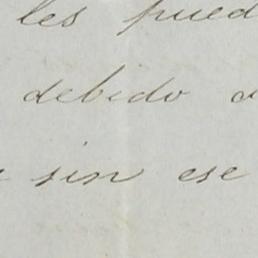 les pued
debido
sin ese